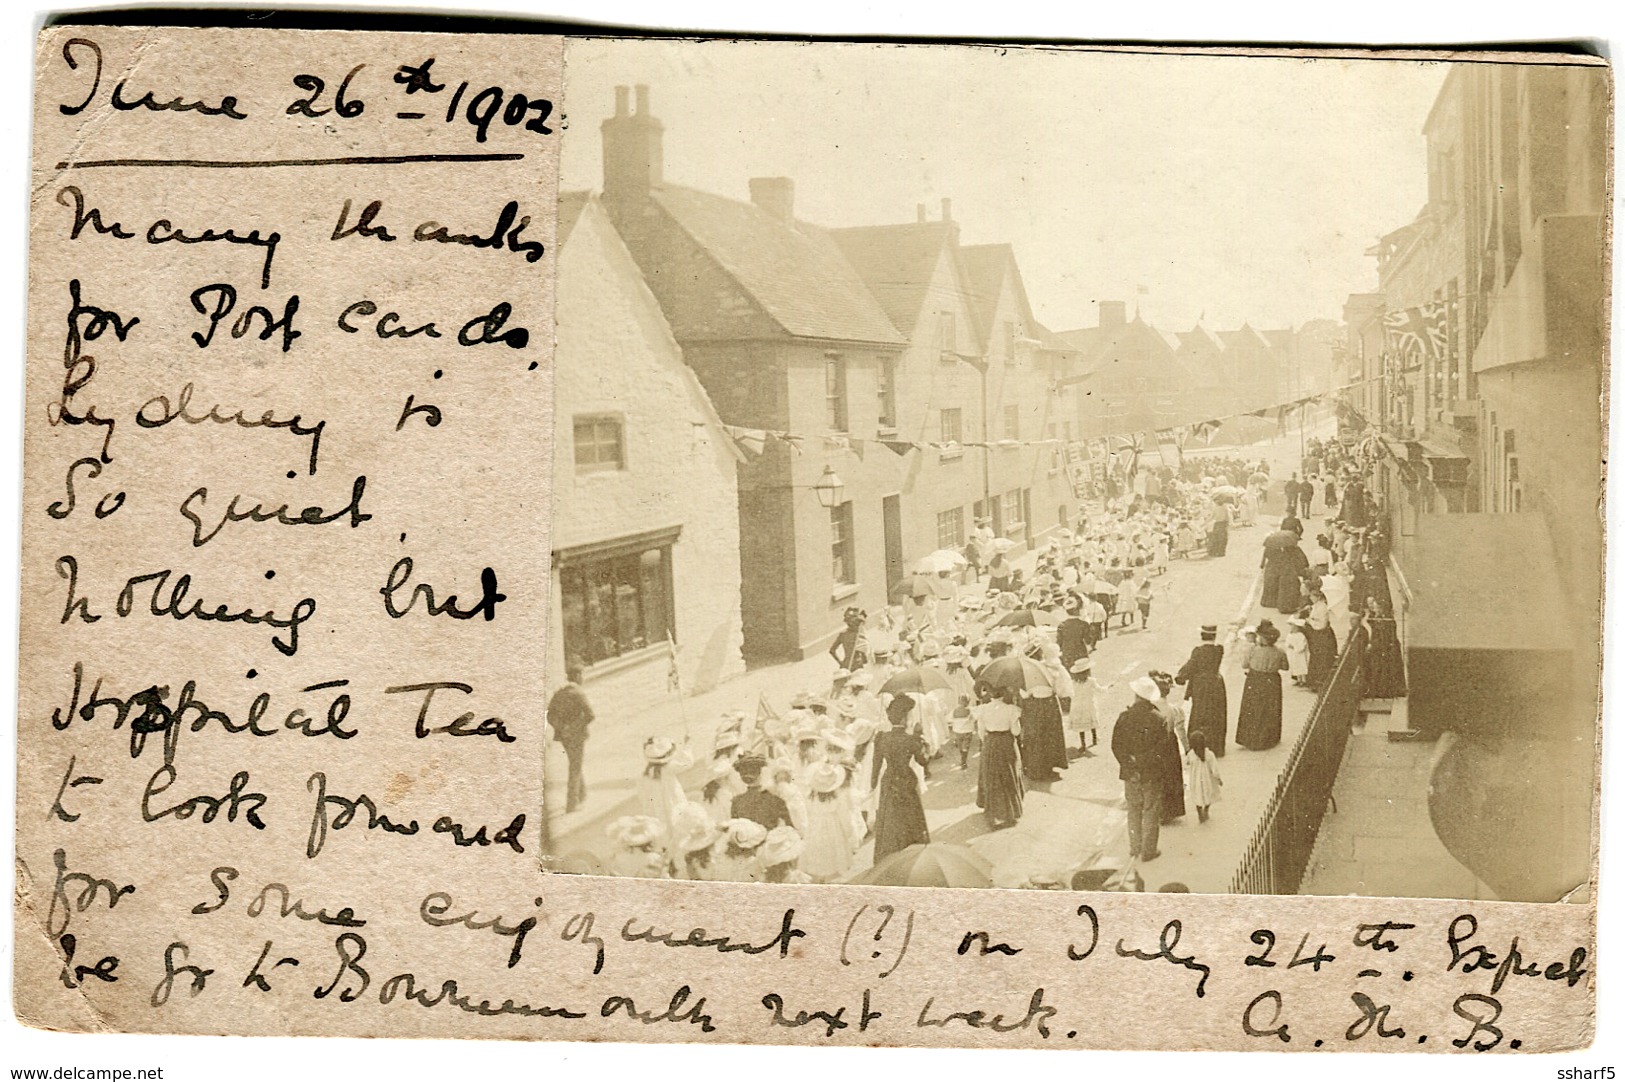 June 26th 1902
Many thanks
for Post cards.
Lydney is
so quiet.
Nothing but
Hospital Tea
to look forward
for some enjoyment (?) on July 24th. Expect
we go to Bournemouth next week. A. M. B.
www.delcampe.net
ssharf5